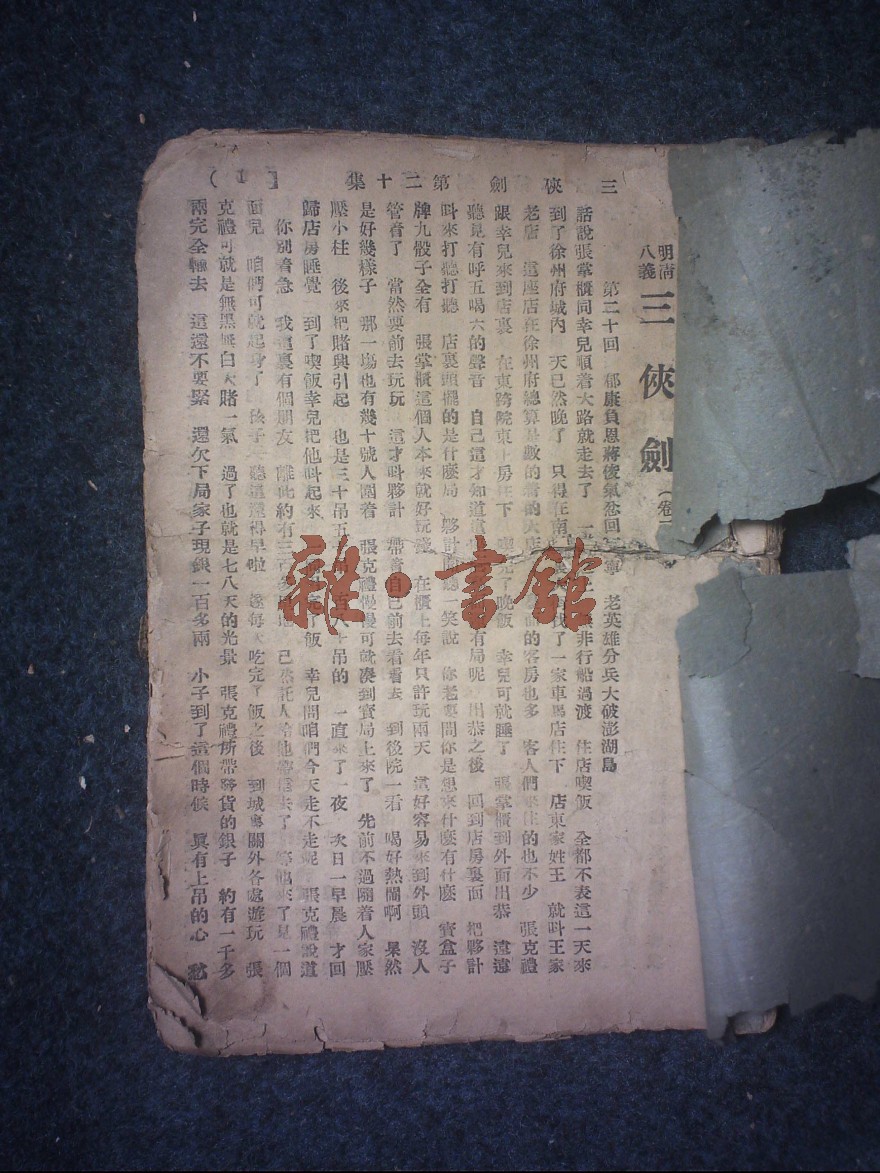 三俠劍　第二十集　【1】
明清八義　三俠劍（卷
第二十回　郁康負恩蔣俊氣忿回　老英雄分兵大破澎湖島
話說張掌櫃同幸兒順着大路就走去了　非行船過渡　住店喫飯　全都不表這一天來
到了徐州府城內　天已然晚了　只得在南　找了一家車馬店住下　店東家姓王　就叫王家
老店　這座店在徐州府總算是數的着的大店　的客房也多　客人們來往的也不少　張克禮
跟幸兒來到店裏　在東跨院東　房住下　喫完了晚飯　幸兒可就睡了　張掌櫃到外面出恭　遠遠
聽見有呼五喝六的聲音　自己這才知道這　有局呢　出恭之後　回到店房裏面　把夥計
叫來打聽打聽　店裏頭擺的是什麼局　夥計　笑說　你老要問你是想來什麼有什麼　寶盒子
牌九骰子全有　張掌櫃這個人本來就好玩錢　在櫃上每年只許玩兩天　這好容易來到外頭　沒人
管着了　當然要前去玩玩　這才叫夥計　帶着自己前去看看去　到後院一看　喝好熱鬧啊　果然
是好幾樣子　那一場也有幾十號人圍着　張克禮慢慢可就湊到寶局上來了　先前不過隨着人家壓
壓小柱　後來把賭興引起　也是三十吊五　百八十吊的　一直來了一夜　次日一早晨　才回
歸店房睡覺　到了喫飯幸兒把他叫起來　了飯　幸兒問咱們今天走不走呢　張克禮說道
你別着急　我這裏有個朋友　離此約有三　已然託人給他　信去了　等他來了見一個
面兒　咱們可就起身了　孩子一聽這還得早啦　遂每天吃完了飯之後　到城裏關外各處遊玩　張
克禮可就是無黑無白大賭一氣　過了也就是七八天的光景　張克禮所帶發貨的銀子　約有一千多
兩完全輸去　這還不要緊　還欠下局家子現銀一百多兩　小子到了這個時候　真有上吊的心　愁
雜·書館